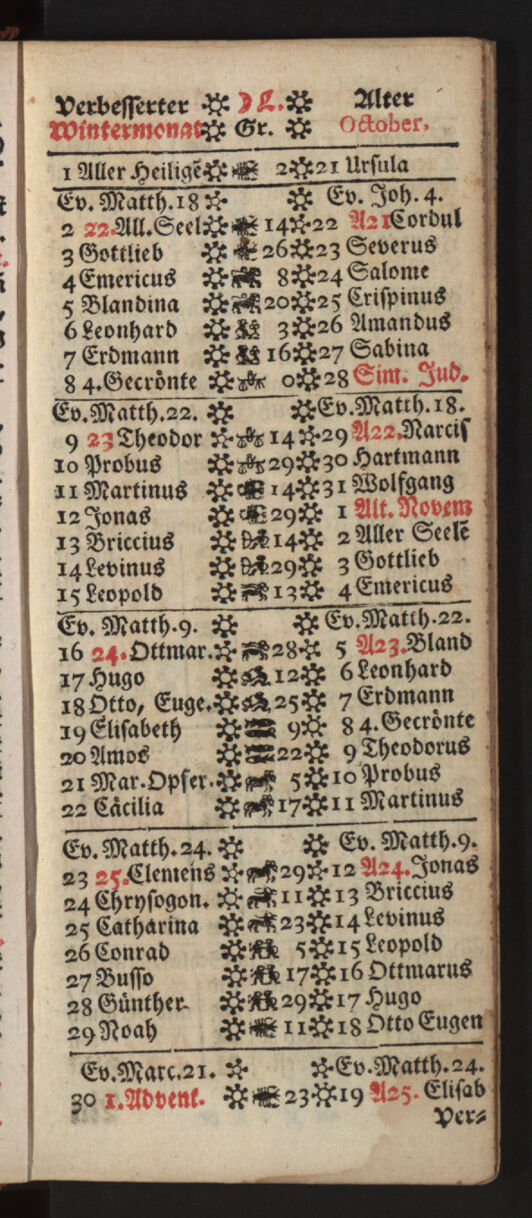 Verbesserter ☽ L. Alter
Wintermonat Gr. October.
1 Aller Heiligẽ 2 21 Ursula
Ev. Matth. 18 Ev. Joh. 4.
2 22. All. Seel 14 22 A21 Cordul
3 Gottlieb 26 23 Severus
4 Emericus 8 24 Salome
5 Blandina 20 25 Crispinus
6 Leonhard 3 26 Amandus
7 Erdmann 16 27 Sabina
8 4. Gecrönte 0 28 Sim. Jud.
Ev. Matth. 22. Ev. Matth. 18.
9 23 Theodor 14 29 A22. Narcis
10 Probus 29 30 Hartmann
11 Martinus 14 31 Wolfgang
12 Jonas 29 1 Alt. Novem
13 Briccius 14 2 Aller Seelẽ
14 Levinus 29 3 Gottlieb
15 Leopold 13 4 Emericus
Ev. Matth. 9. Ev. Matth. 22.
16 24. Ottmar. 28 5 A23. Bland
17 Hugo 12 6 Leonhard
18 Otto, Euge. 25 7 Erdmann
19 Elisabeth 9 8 4. Gecrönte
20 Amos 22 9 Theodorus
21 Mar. Opfer. 5 10 Probus
22 Cäcilia 17 11 Martinus
Ev. Matth. 24. Ev. Matth. 9.
23 25. Clemens 29 12 A24. Jonas
24 Chrysogon. 11 13 Briccius
25 Catharina 23 14 Levinus
26 Conrad 5 15 Leopold
27 Busso 17 16 Ottmarus
28 Günther 29 17 Hugo
29 Noah 11 18 Otto Eugen
Ev. Marc. 21. Ev. Matth. 24.
30 1. Advent. 23 19 A25. Elisab
Ver⸗